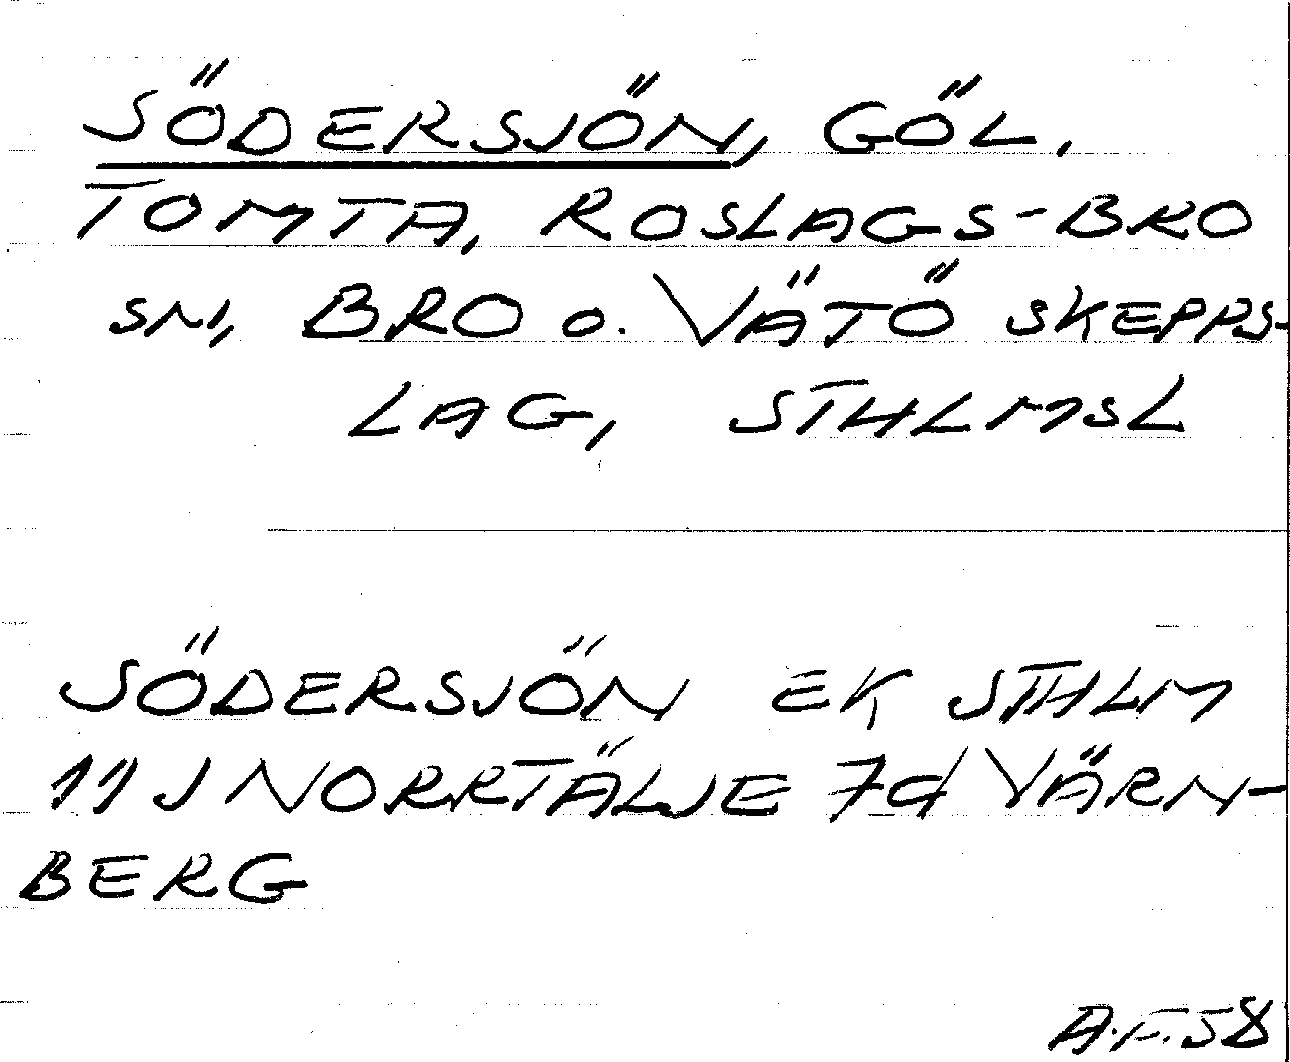 SÖDERSJÖN, GÖL,
TOMTA, ROSLAGS-BRO
SN, BRO o. VÄTÖ SKEPPS-
LAG, STHLMSL
SÖDERSJÖN EK STHLM
11 J NORRTÄLJE 7d VÄRN-
BERG
A.F. 58